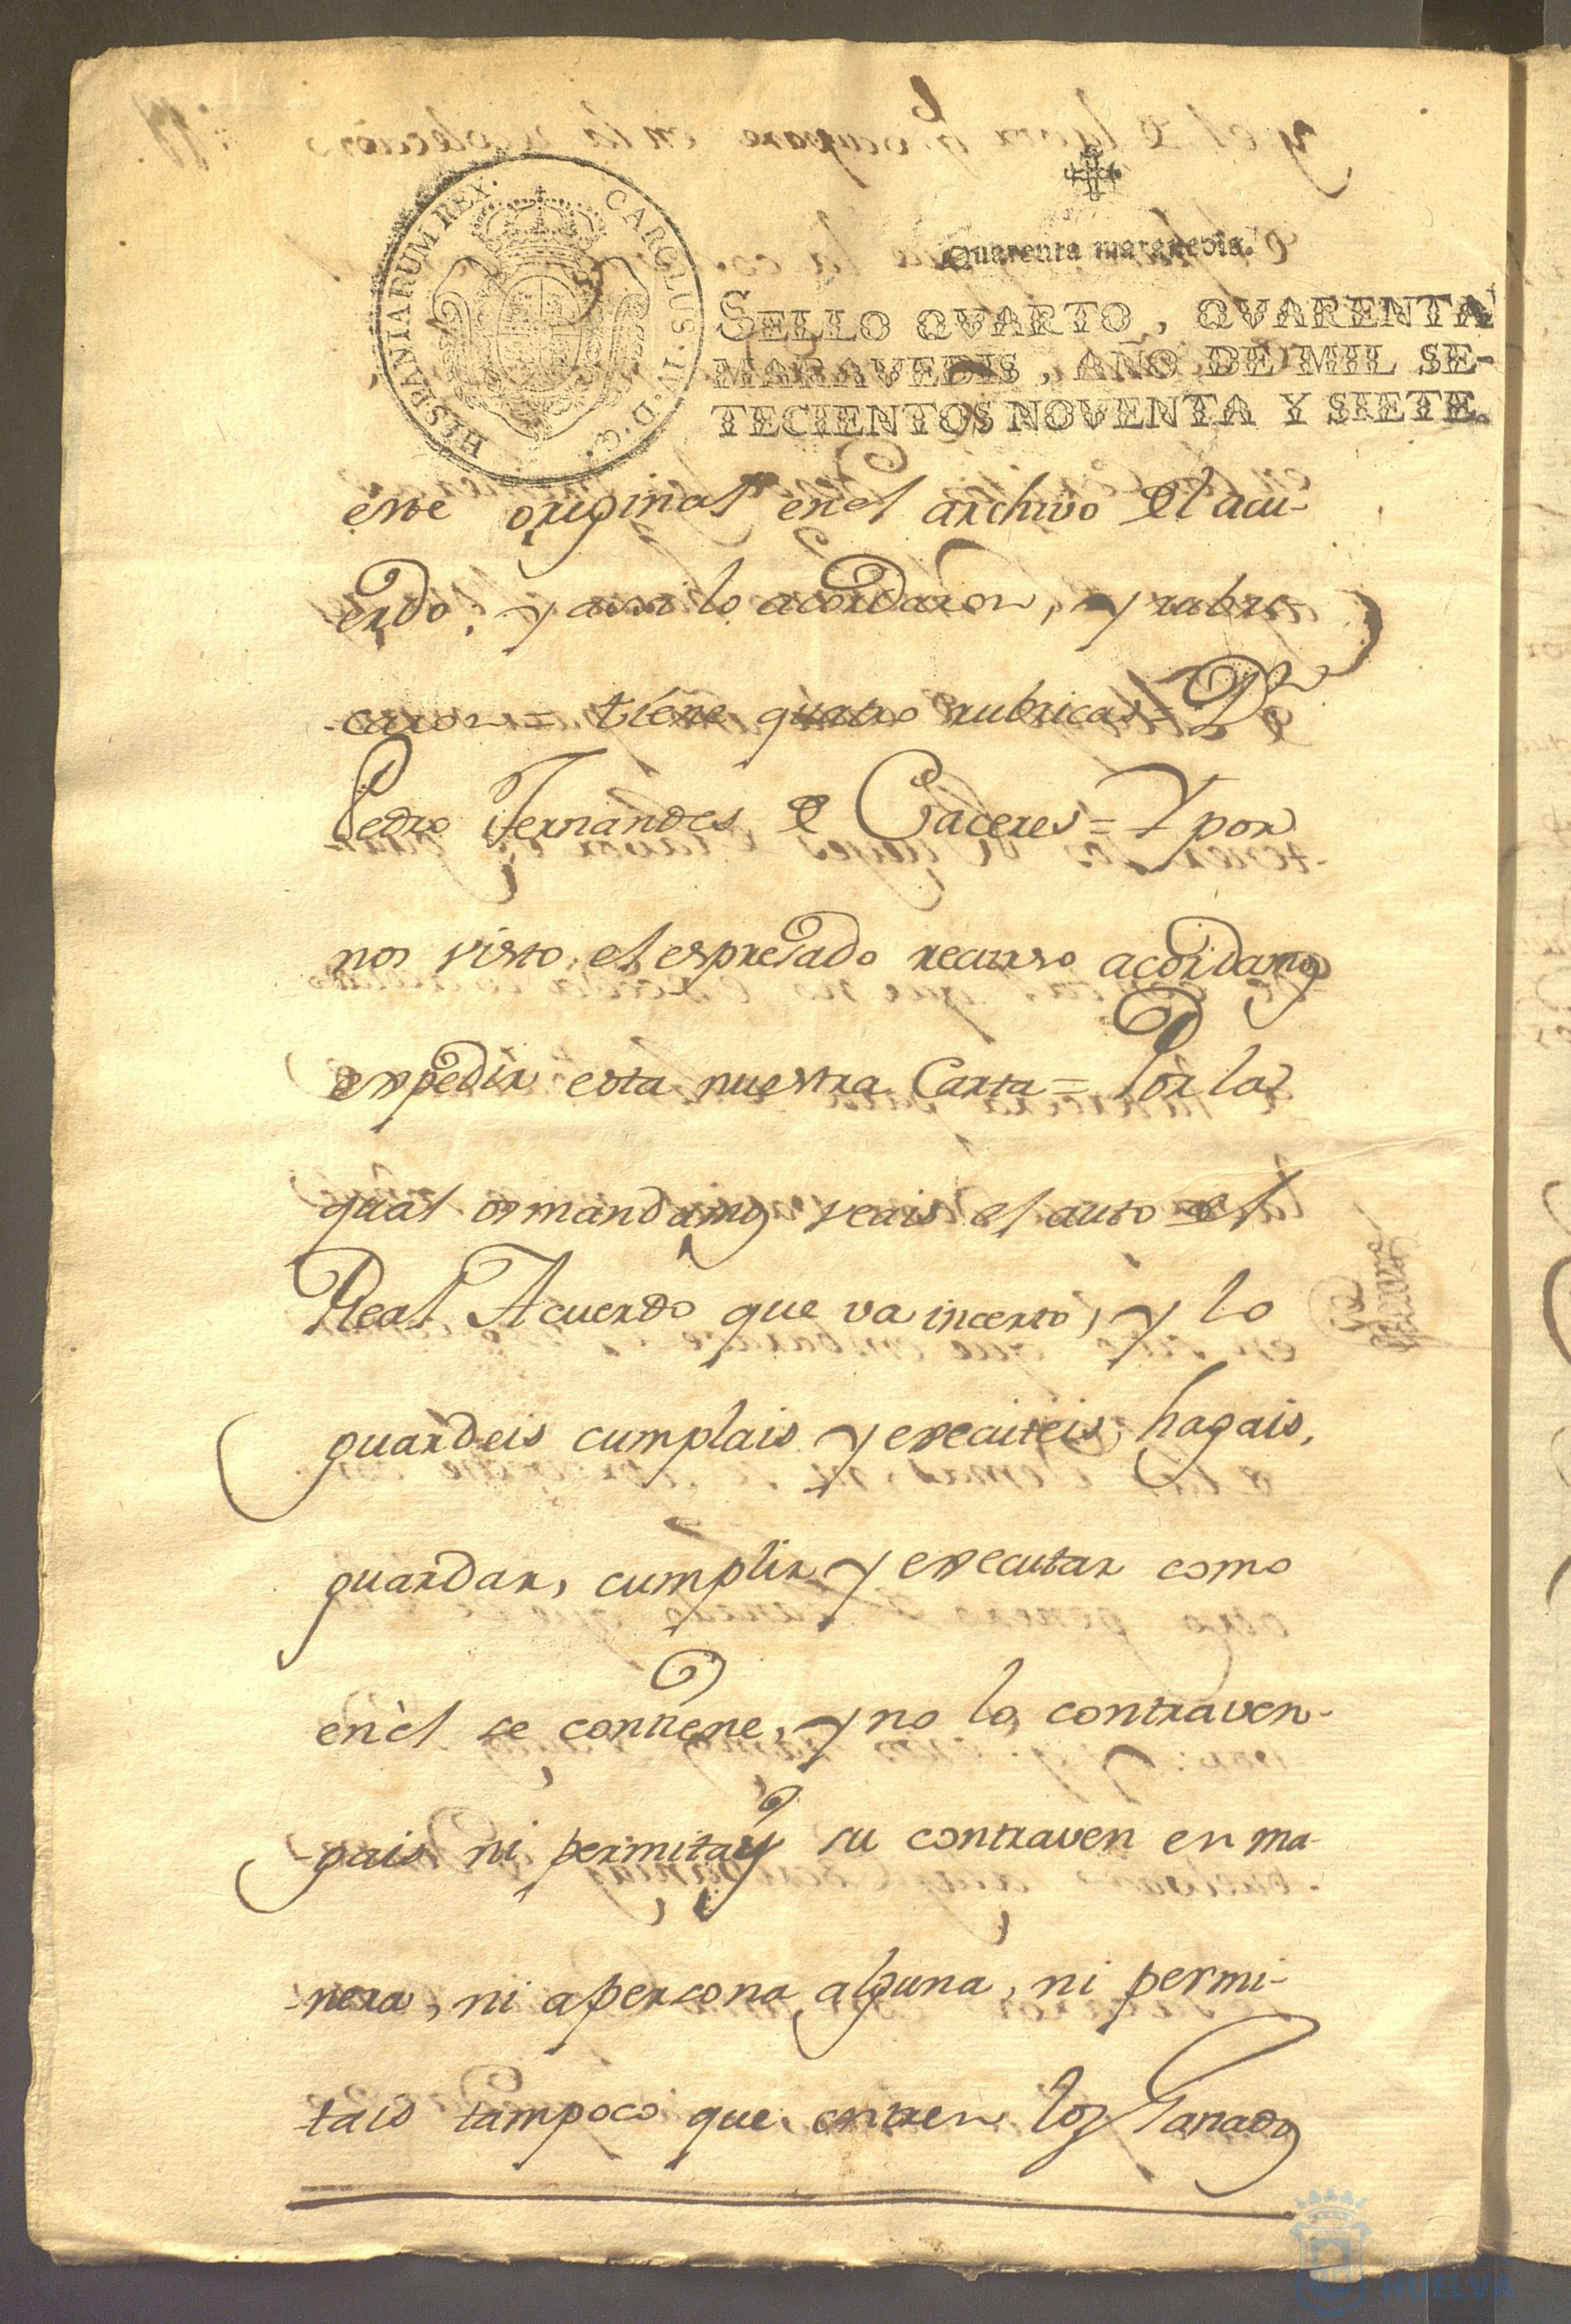 HISPANIARUM REX. CAROLUS. IV. D. G.
Quarenta maravedis.
SELLO QVARTO, QVARENTA
MARAVEDIS, AÑO DE MIL SE-
TECIENTOS NOVENTA Y SIETE.
este original en el archivo del acu-
erdo; y assi lo acordaron, y rubri
-caron = tiene quatro rubricas = Dn
Pedro Fernandes de Caceres = Y por
nos visto el espresado recurso acordamos
expedir esta nuestra Carta = Por la
qual os mandamos veais el auto del
Real Acuerdo que va incerto, y lo
guardeis cumplais y executeis, hagais,
guardar, cumplir y executar como
en el se contiene, y no lo contraven-
-gais ni permitays su contraven en ma-
-nera, ni a persona alguna, ni permi-
tais tampoco que entren los Ganados
HUELVA